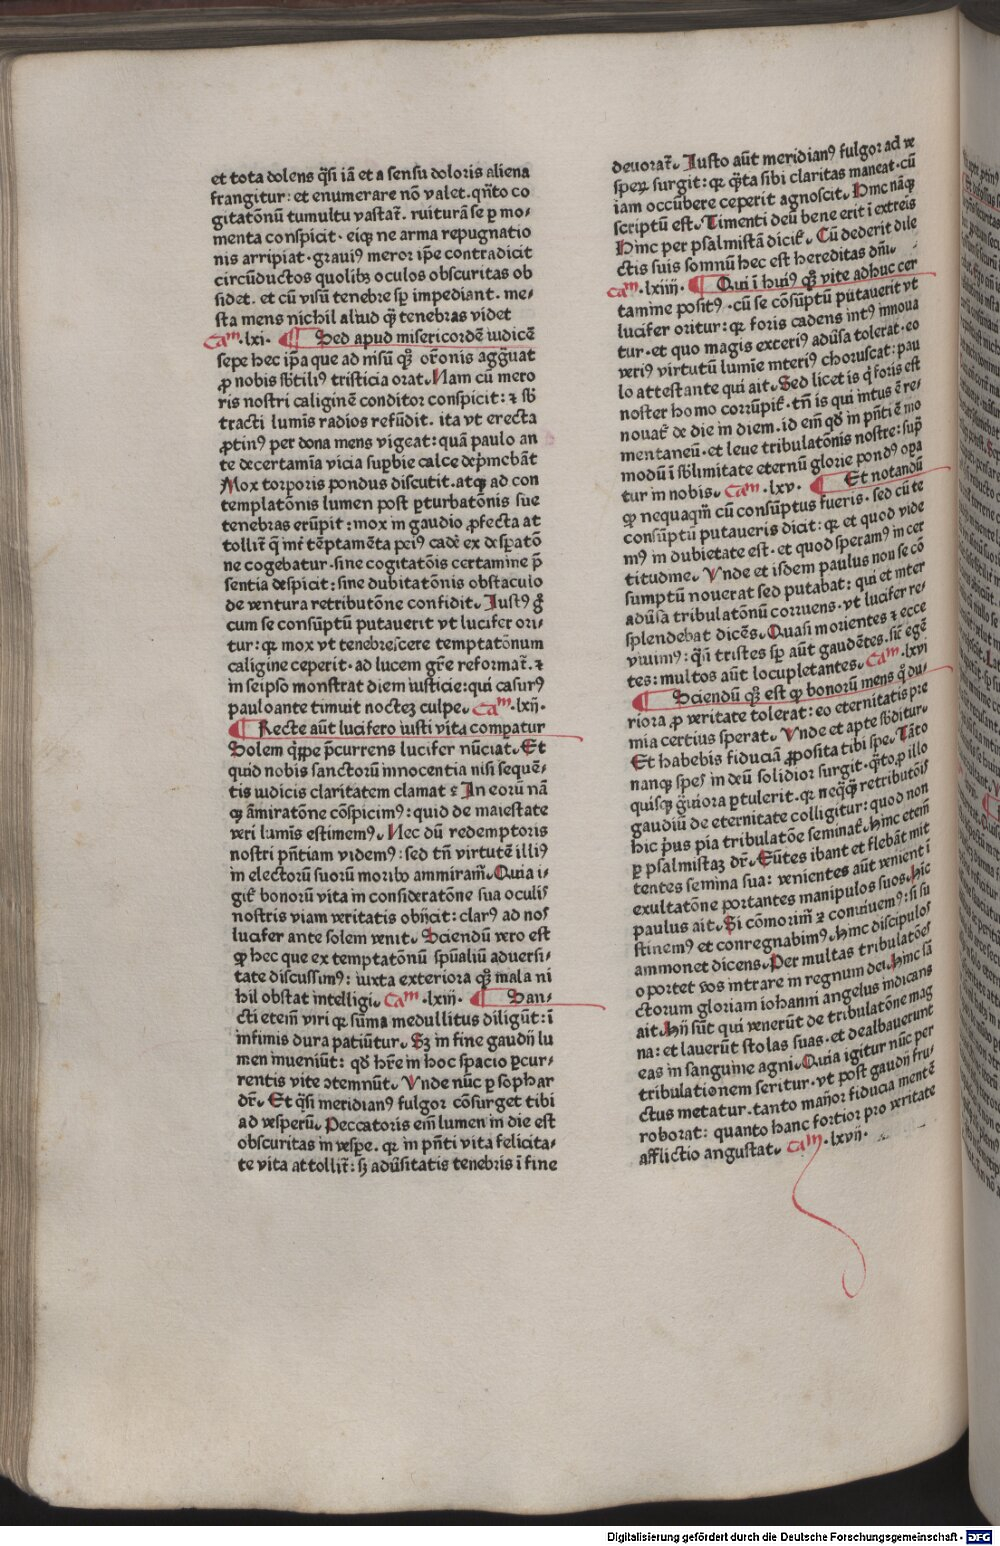 et tota dolens q̃si iã et a sensu doloris aliena
frangitur: et enumerare nõ valet. qñto co
gitatõnũ tumultu vastat᷑. ruiturã se ꝑ mo⸗
menta conspicit. eiqꝫ ne arma repugnatio
nis arripiat. graviꝰ meror ip̃e contradicit
circũductos quolibꝫ oculos obscuritas ob
sidet. et cũ visũ tenebre sp̱ impediant. me⸗
sta mens nichil aliud q̃ꝫ tenebras videt
Cam .lxi. Sed apud misericordẽ iudicẽ
sepe hec ip̃a que ad nisũ qꝫ or̃onis agg̃uat
ꝓ nobis sb̃tiliꝰ tristicia orat. Nam cũ mero
ris nostri caliginẽ conditor conspicit: ⁊ sb̃
tracti lumis radios refũdit. ita vt erecta
ꝓtinꝰ per dona mens vigeat: quã paulo an
te decertamĩa vicia suꝑbie calce dep̃mebãt
Mox torporis pondus discutit. atqꝫ ad con
templatõnis lumen post ꝑturbatõnis sue
tenebras erũpit: mox in gaudio ꝓfecta at
tollit᷑ q̃ mr̃ tẽptamẽta peiꝰ cadẽ ex desꝑatõ
ne cogebatur. sine cogitatõis certamine p̃
sentia despicit: sine dubitatõnis obstaculo
de ventura retributõne confidit. Iustꝰ g̊
cum se consũptũ putauerit vt lucifer ori⸗
tur: qꝛ mox vt tenebrescere temptatõnum
caligine ceperit. ad lucem gr̃e reformat᷑. ⁊
in seipso monstrat diem iusticie: qui casurꝰ
pauloante timuit noctez culpe. Cam .lxij.
Recte aũt lucifero iusti vita comꝑatur
Solem q̃ꝑpe p̃currens lucifer nũciat. Et
quid nobis sanctorũ innocentia nisi sequẽ⸗
tis iudicis claritatem clamat: In eorũ nã
qꝫ ãmiratõne cõspicimꝰ: quid de maiestate
veri lumĩs estimemꝰ. Nec dũ redemptoris
nostri pñtiam videmꝰ: sed tñ virtutẽ illiꝰ
in electorũ suorũ moribꝰ ammiram᷑. Quia i⸗
git᷑ bonorũ vita in consideratõne sua oculis
nostris viam veritatis obijcit: clarꝰ ad nos
lucifer ante solem venit. Sciendũ vero est
ꝙ hec que ex temptatõnũ sp̃ualiũ aduersi⸗
tate discussimꝰ: iuxta exteriora qꝫ mala ni
hil obstat intelligi. Cam .lxiij. San⸗
cti eteni viri qꝛ sũma medullitus diligũt: ĩ
infimis dura patiũtur. Sꝫ in fine gaudij lu
men inueniũt: qd̃ hr̃e in hoc spacio ꝑcur⸗
rentis vite ↄtemnũt. Vnde nũc ꝑ sophar
dr̃. Et q̃si meridianꝰ fulgor cõsurget tibi
ad vesperũ. Peccatoris em̃ lumen in die est
obscuritas in vesꝑe. qꝛ in pñti vita felicita⸗
te vita attollit᷑: sꝫ adũsitatis tenebris ĩ fine
deuorat᷑. Iusto aũt meridianꝰ fulgor ad ve
speꝝ surgit: qꝛ q̃ta sibi claritas maneat. cũ
iam occũbere ceperit agnoscit. Hinc nãqꝫ
scriptũ est. Timenti deũ bene erit ĩ extreis
Hinc per psalmistã dicit᷑. Cũ dederit dile
ctis suis somnũ hec est hereditas dñi.
Cam .lxiiij. Qui ĩ huiꝰ qꝫ vite adhuc cer
tamine positꝰ. cũ se cõsũptũ putauerit vt
lucifer oritur: qꝛ foris cadens intꝰ innoua
tur. et quo magis exteriꝰ adũsa tolerat. eo
veriꝰ virtutũ lumie interiꝰ choruscat: pau
lo attestante qui ait. Sed licet is q̊ foris est
noster homo corrũpit᷑. tñ is qui intus ẽ re⸗
nouat᷑ de die in diem. id em̃ qd̃ in pñti ẽ mo
mentaneũ. et leue tribulatõnis nostre: sup̃
modũ ĩ sb̃limitate eternũ glorie pondꝰ oꝑa
tur in nobis. Cam .lxv. Et notandũ
ꝙ nequaqm̃ cũ consũptus fueris. sed cũ te
consũptũ putaueris dicit: qꝛ et quod vide
mꝰ in dubietate est. et quod speramꝰ in cer
titudine. Vnde et isdem paulus non se cõ
sumptũ nouerat sed putabat: qui et inter
adũsa tribulatõnũ corruens. vt lucifer re⸗
splendebat dicẽs. Quasi morientes ⁊ ecce
viuimꝰ: q̃si tristes sp̱ aũt gaudẽtes. sic̃ egẽ
tes: multos aũt locupletantes. Cam .lxvi
Sciendũ qꝫ est ꝙ bonorũ mens q̊ du⸗
riora ꝓ veritate tolerat: eo eternitatis pre
mia certius sperat. Vnde et apte sb̃ditur.
Et habebis fiduciã ꝓposita tibi spe. Tãto
nanqꝫ spes in deũ solidior surgit. q̃to ꝓ illo
quisqꝫ g̃uiora ꝑtulerit. qꝛ neq̃qꝫ retributõis
gaudiũ de eternitate colligitur: quod non
hic p̃us pia tribulatõe seminat᷑. Hinc eteni
ꝑ psalmistaꝫ dr̃. Eũtes ibant et flebãt mit
tentes semina sua: venientes aũt venient ĩ
exultatõne portantes manipulos suos. Hic
paulus ait. Si cõmorim᷑ ⁊ conuiuemꝰ: si su
stinemꝰ et conregnabimꝰ. Hinc discipulos
ammonet dicens. Per multas tribulatões
oportet vos intrare in regnum dei. Hinc sã
ctorum gloriam iohanni angelus indicans
ait. Hij sũt qui venerũt de tribulatõne mag
na: et lauerũt stolas suas. et dealbauerunt
eas in sanguine agni. Quia igitur nũc per
tribulationem seritur. vt post gaudij fru⸗
ctus metatur. tanto maior fiducia mentẽ
roborat: quanto hanc fortior pro veritate
afflictio angustat. Cam .lxvij.
Digitalisierung gefördert durch die Deutsche Forschungsgemeinschaft - DFG